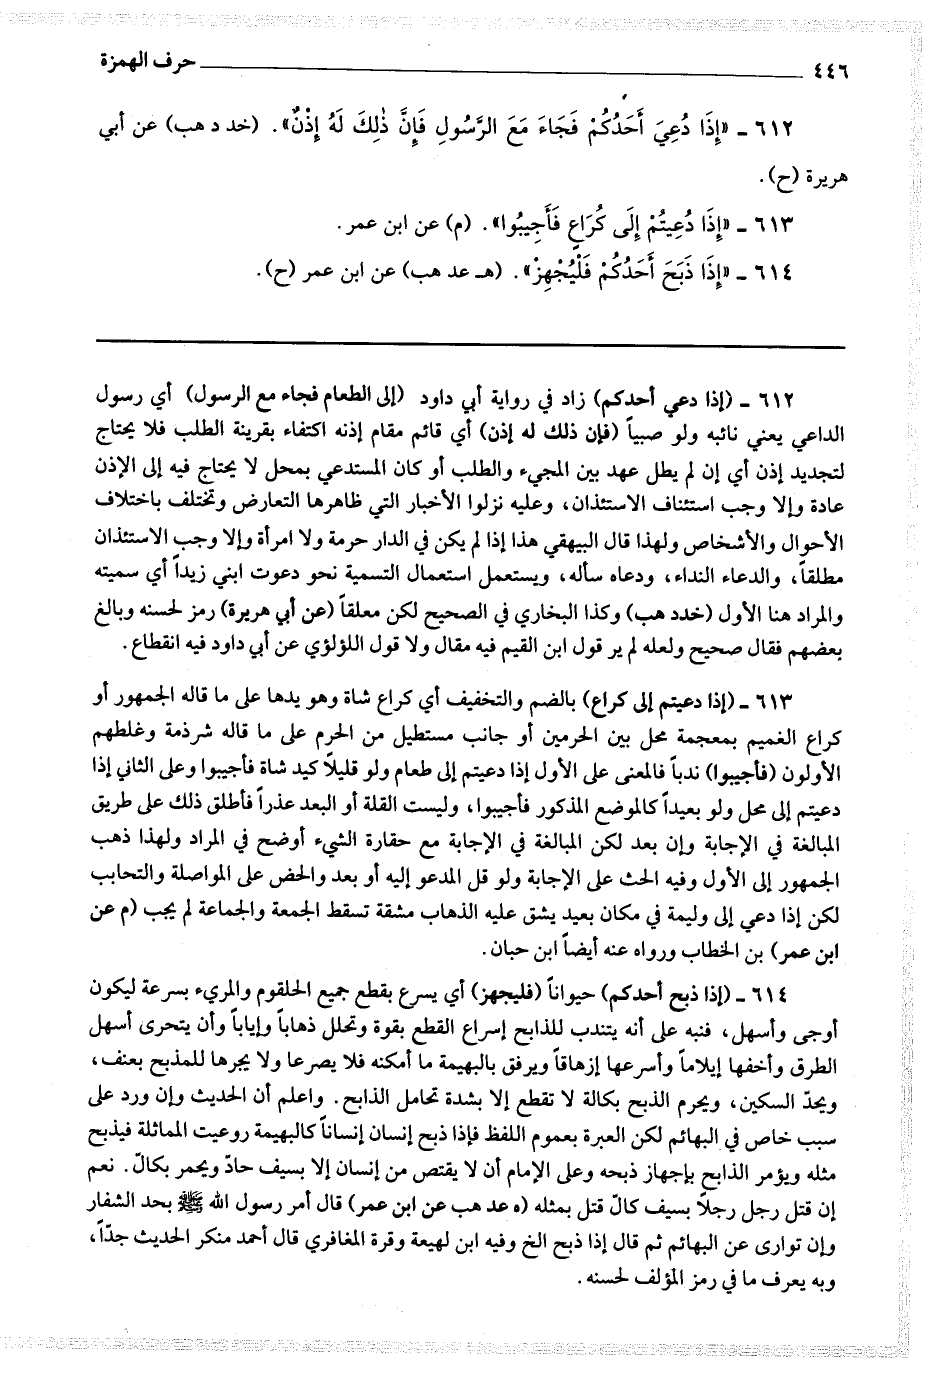 ٤٤٦ حرف الهمزة
٦١٢ ـ «إِذَا دُعِيَ أَحَدُكُمْ فَجَاءَ مَعَ الرَّسُولِ فَإِنَّ ذٰلِكَ لَهُ إِذْنٌ». (خد د هب) عن أبي
هريرة (ح).
٦١٣ ـ «إِذَا دُعِيتُمْ إِلَى كُرَاعٍ فَأَجِيبُوا». (م) عن ابن عمر.
٦١٤ ـ «إِذَا ذَبَحَ أَحَدُكُمْ فَلْيُجْهِزْ». (هـ عد هب) عن ابن عمر (ح).
٦١٢ ـ (إذا دعي أحدكم) زاد في رواية أبي داود (إلى الطعام فجاء مع الرسول) أي رسول
الداعي يعني نائبه ولو صبياً (فإن ذلك له إذن) أي قائم مقام إذنه اكتفاء بقرينة الطلب فلا يحتاج
لتجديد إذن أي إن لم يطل عهد بين المجيء والطلب أو كان المستدعي بمحل لا يحتاج فيه إلى الإذن
عادة وإلا وجب استئناف الاستئذان، وعليه نزلوا الأخبار التي ظاهرها التعارض وتختلف باختلاف
الأحوال والأشخاص ولهذا قال البيهقي هذا إذا لم يكن في الدار حرمة ولا امرأة وإلا وجب الاستئذان
مطلقاً، والدعاء النداء، ودعاه سأله، ويستعمل استعمال التسمية نحو دعوت ابني زيداً أي سميته
والمراد هنا الأول (خدد هب) وكذا البخاري في الصحيح لكن معلقاً (عن أبي هريرة) رمز لحسنه وبالغ
بعضهم فقال صحيح ولعله لم ير قول ابن القيم فيه مقال ولا قول اللؤلؤي عن أبي داود فيه انقطاع.
٦١٣ ـ (إذا دعيتم إلى كراع) بالضم والتخفيف أي كراع شاة وهو يدها على ما قاله الجمهور أو
كراع الغميم بمعجمة محل بين الحرمين أو جانب مستطيل من الحرم على ما قاله شرذمة وغلطهم
الأولون (فأجيبوا) ندباً فالمعنى على الأول إذا دعيتم إلى طعام ولو قليلاً كيد شاة فأجيبوا وعلى الثاني إذا
دعيتم إلى محل ولو بعيداً كالموضع المذكور فأجيبوا، وليست القلة أو البعد عذراً فأطلق ذلك على طريق
المبالغة في الإجابة وإن بعد لكن المبالغة في الإجابة مع حقارة الشيء أوضح في المراد ولهذا ذهب
الجمهور إلى الأول وفيه الحث على الإجابة ولو قل المدعو إليه أو بعد والحض على المواصلة والتحابب
لكن إذا دعي إلى وليمة في مكان بعيد يشق عليه الذهاب مشقة تسقط الجمعة والجماعة لم يجب (م عن
ابن عمر) بن الخطاب ورواه عنه أيضاً ابن حبان.
٦١٤ ـ (إذا ذبح أحدكم) حيواناً (فليجهز) أي يسرع بقطع جميع الحلقوم والمريء بسرعة ليكون
أوجى وأسهل، فنبه على أنه يتندب للذابح إسراع القطع بقوة وتحلل ذهاباً وإياباً وأن يتحرى أسهل
الطرق وأخفها إيلاماً وأسرعها إزهاقاً ويرفق بالبهيمة ما أمكنه فلا يصرعا ولا يجرها للمذبح بعنف،
ويحدّ السكين، ويحرم الذبح بكالة لا تقطع إلا بشدة تحامل الذابح. واعلم أن الحديث وإن ورد على
سبب خاص في البهائم لكن العبرة بعموم اللفظ فإذا ذبح إنسان إنساناً كالبهيمة روعيت المماثلة فيذبح
مثله ويؤمر الذابح بإجهاز ذبحه وعلى الإمام أن لا يقتص من إنسان إلا بسيف حادّ ويحمر بكالّ. نعم
إن قتل رجل رجلاً بسيف كالّ قتل بمثله (ه عد هب عن ابن عمر) قال أمر رسول الله ﷺ بحد الشفار
وإن توارى عن البهائم ثم قال إذا ذبح الخ وفيه ابن لهيعة وقرة المغافري قال أحمد منكر الحديث جدّاً،
وبه يعرف ما في رمز المؤلف لحسنه.